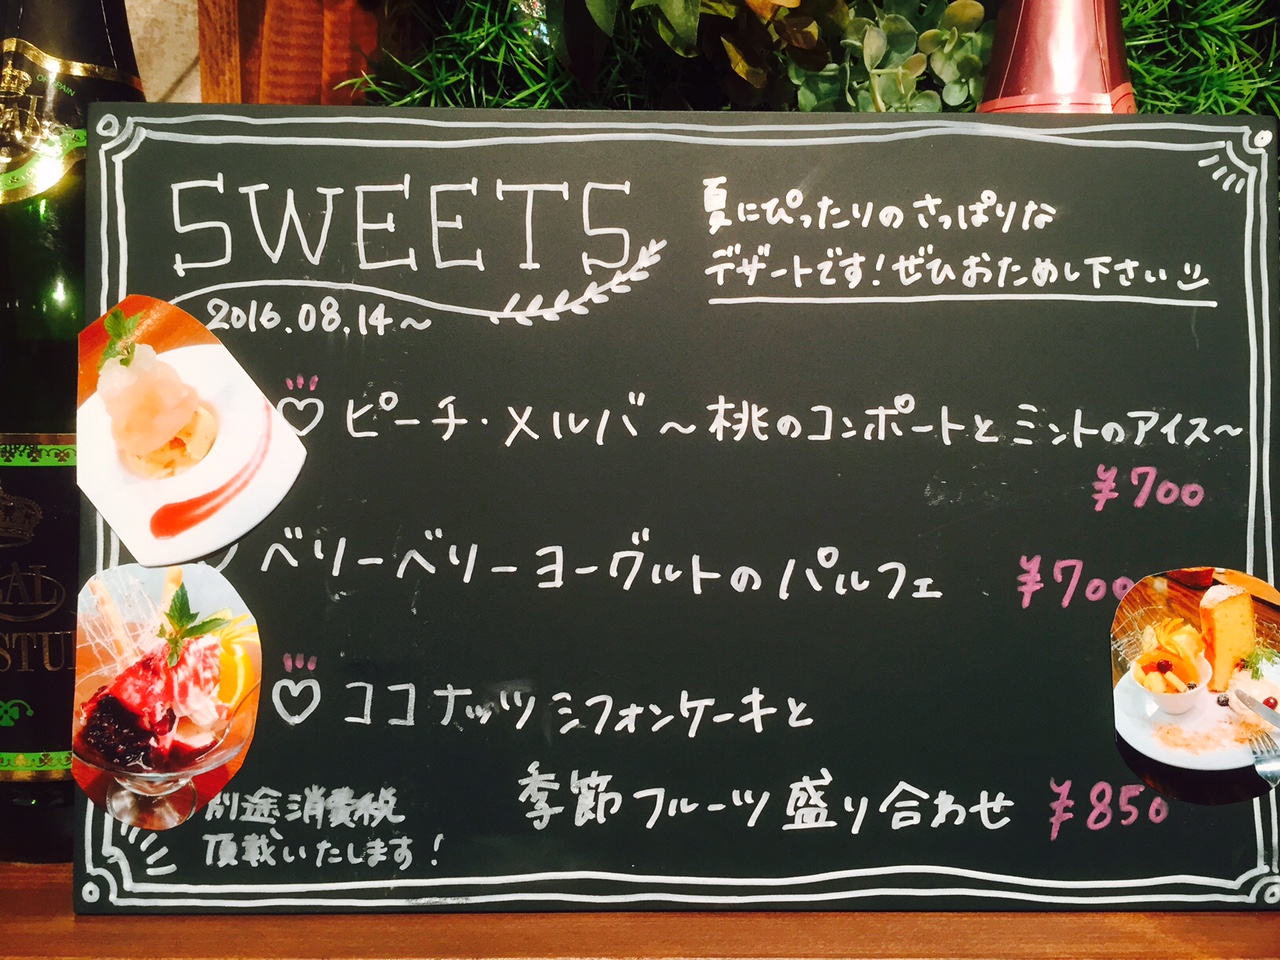 SWEETS
夏にぴったりのさっぱりな
デザートです!ぜひおためし下さい
2016.08.14~
ピーチ・メルバ~桃のコンポートとミントのアイス~
¥700
ベリーベリーヨーグルトのパルフェ ¥700
ココナッツシフォンケーキと
季節フルーツ盛り合わせ ¥850
別途消費税
頂戴いたします!